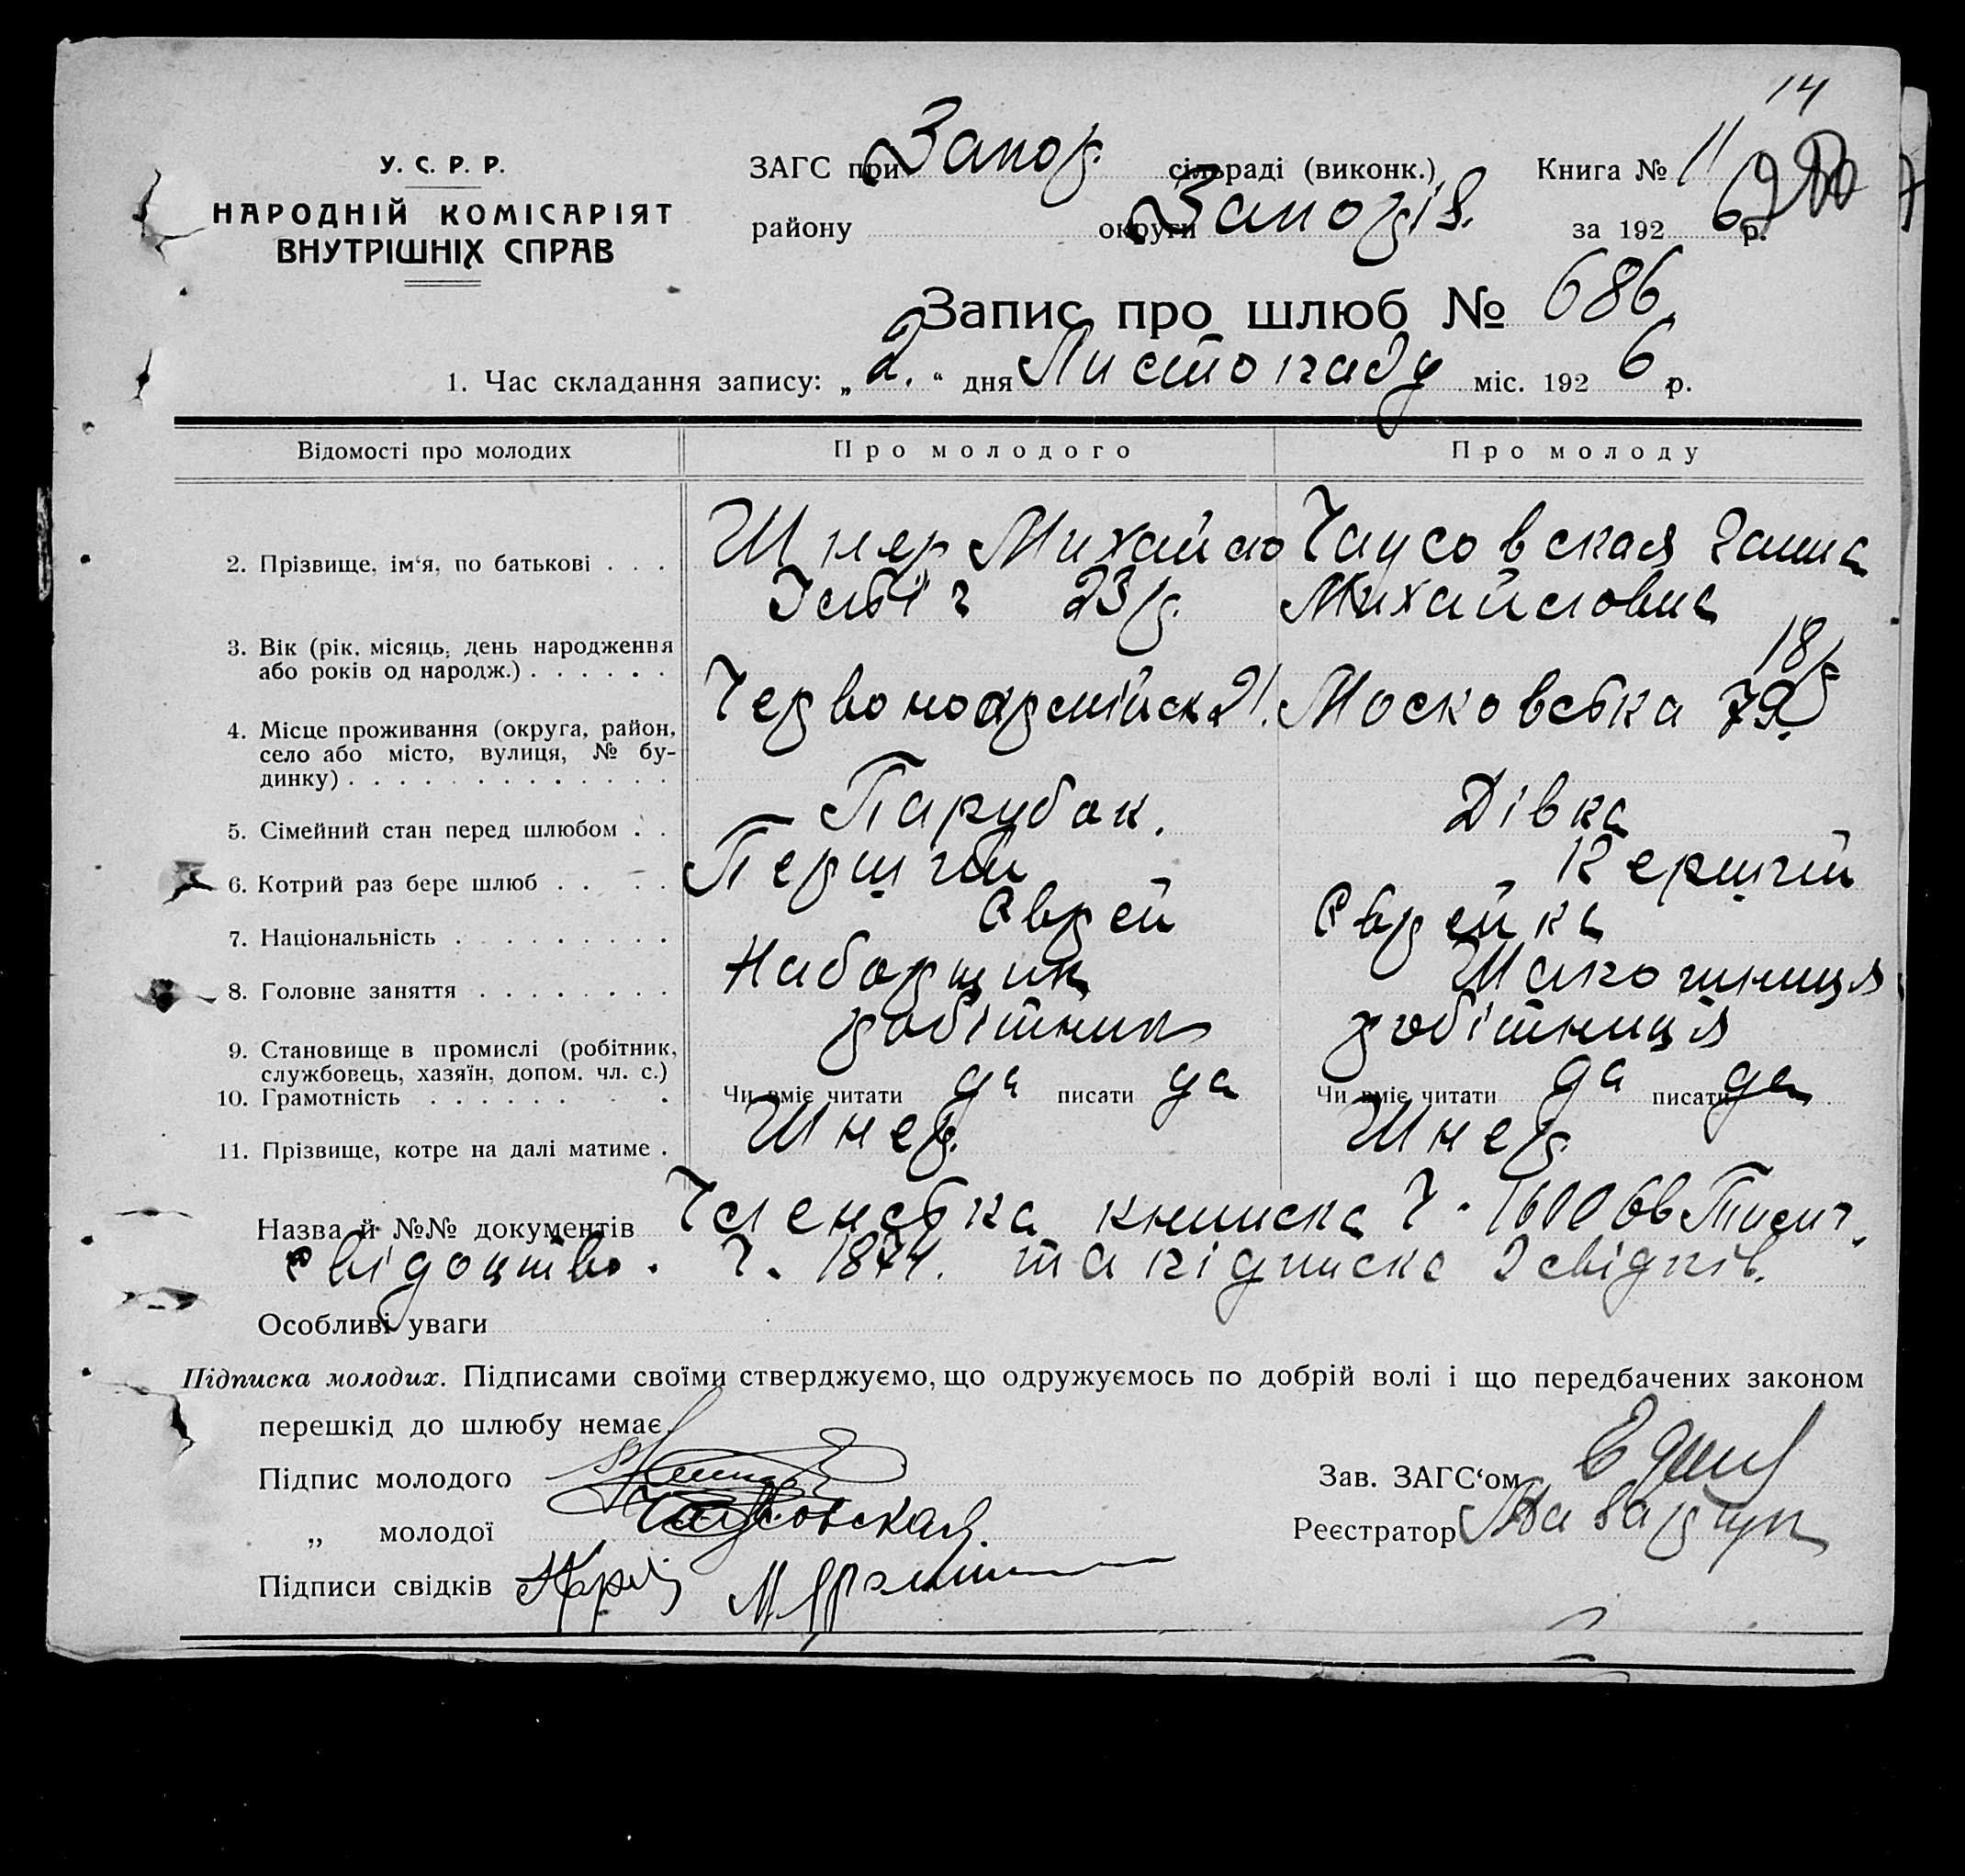 14
У. С. Р. Р.
НАРОДНІЙ КОМІСАРІЯТ
ВНУТРІШНІХ СПРАВ
ЗАГС при Запор. сільраді (виконк.) Книга № 11
району округи Запоріз. за 192 6 р.
Запис про шлюб № 686
1. Час складання запису: „ 2. " дня Листопаду міс. 192 6 р.
Відомості про молодих Про молодого Про молоду
2. Прізвище, ім'я, по батькові . . . Шнер Михайло Чаусовская Галина
23 р. Михайловна
3. Вік (рік, місяць, день народження 18 р
або років од народж.) . . . . . .
4. Місце проживання (округа, район, Червоноармійск 21. Московська 79.
село або місто, вулиця, № бу-
динку) . . . . . . . . . . . . .
5. Сімейний стан перед шлюбом . . Парубок. Дівка
6. Котрий раз бере шлюб . . . . Першій Першій
7. Національність . . . . . . . . . Єврей Єврейка
8. Головне заняття . . . . . . . . Наборщик
9. Становище в промислі (робітник, робітник робітниця
службовець, хазяїн, допом. чл. с.)
10. Грамотність . . . . . . . . Чи вміє читати да писати да Чи вміє читати да писати да
11. Прізвище, котре на далі матиме . Шнер. Шнер
Назва й №№ документів Членська книжка Ч.
свідоцтво. Ч. 1874. та підписка 2 свідків.
Особливі уваги
Підписка молодих. Підписами своїми стверджуємо, що одружуємось по добрій волі і що передбачених законом
перешкід до шлюбу немає.
Підпис молодого Зав. ЗАГС'ом
„ молодої Чаусовская Реєстратор
Підписи свідків